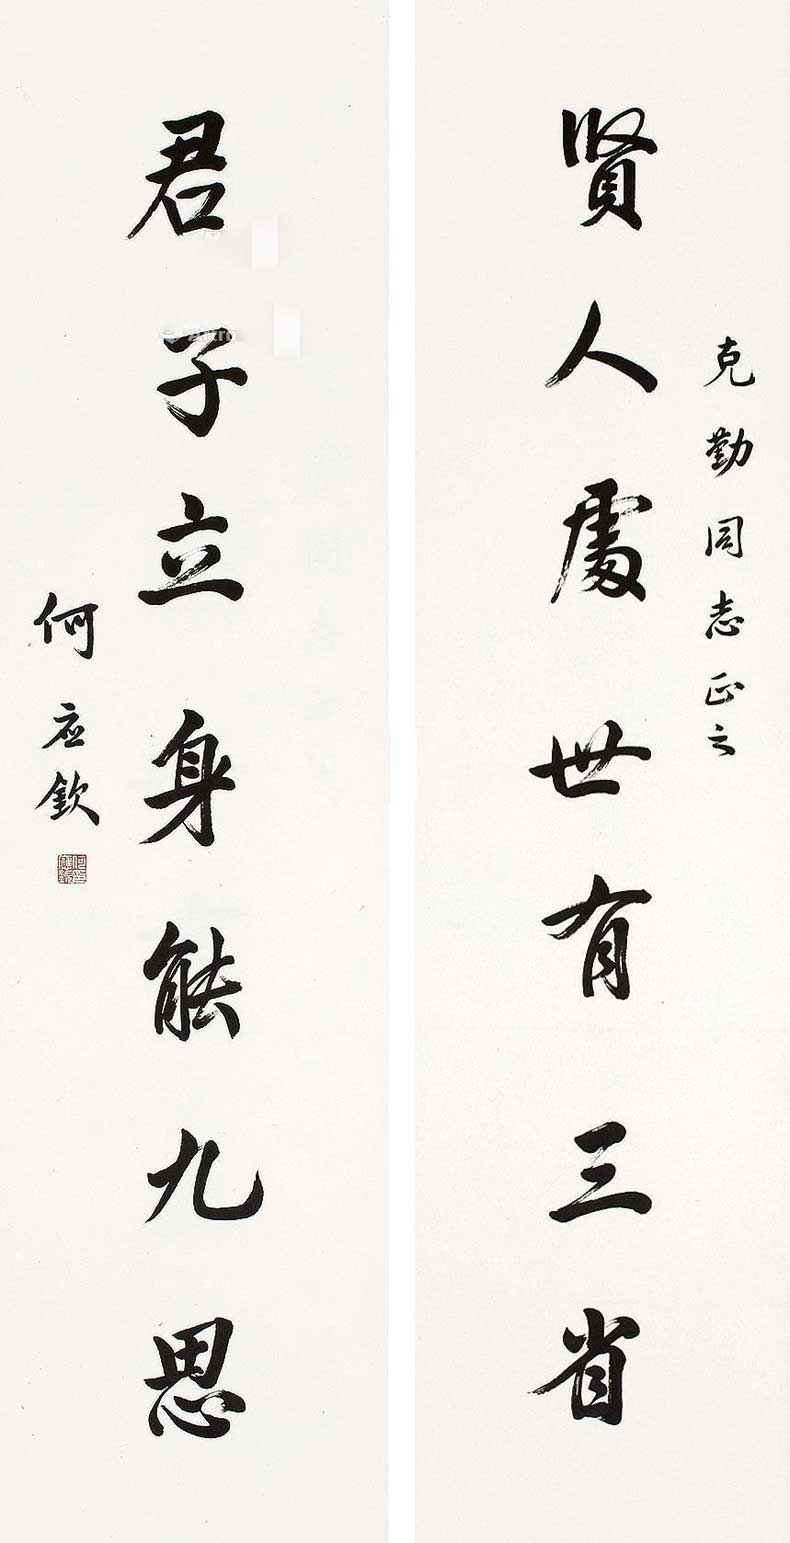 克勤同志正之
賢人處世有三省
君子立身能九思
何应欽